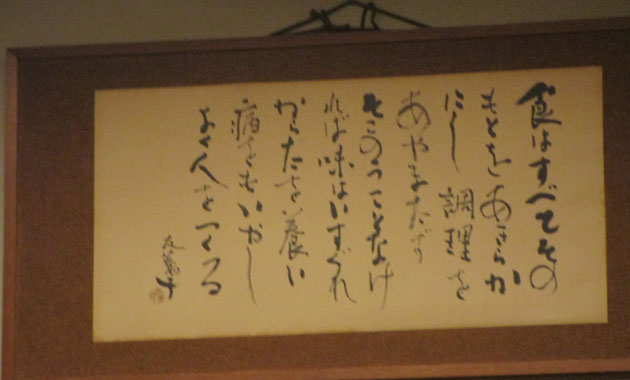 食はすべてその
もとをあきらか
にし調理を
あやまたず
そこのうことなけ
れば味はいすぐれ
からだを養い
病をもいやし
よく人をつくる